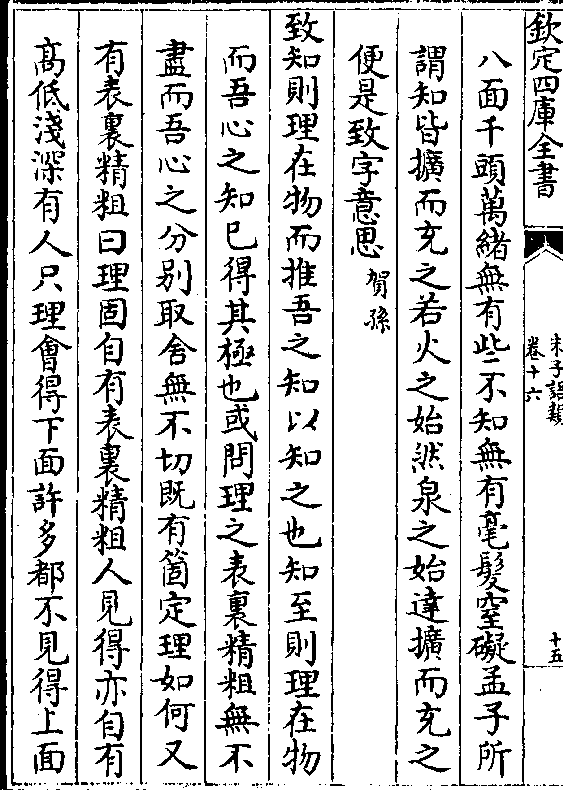 欽定四庫全書
朱子語類
卷十六
十五
八面千頭萬緒無有些子不知無有毫髮窒礙孟子所
謂知皆擴而充之若火之始然泉之始達擴而充之
便是致字意思賀孫
致知則理在物而推吾之知以知之也知至則理在物
而吾心之知已得其極也或問理之表裏精粗無不
盡而吾心之分别取舍無不切既有箇定理如何又
有表裏精粗曰理固自有表裏精粗人見得亦自有
髙低淺深有人只理會得下面許多都不見得上面